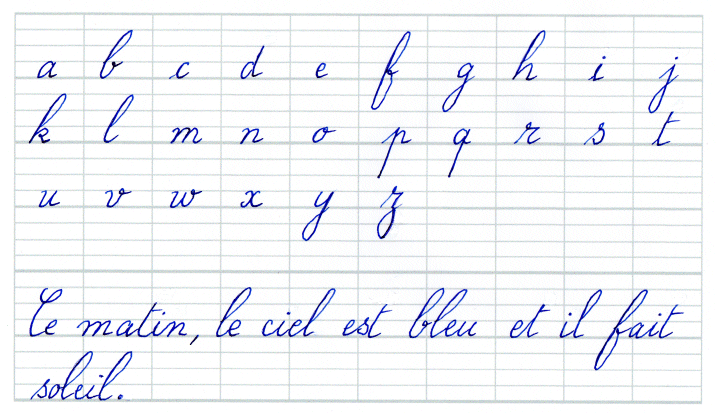 a b c d e f g h i j
k l m n o p q r s t
u v w x y z
Ce matin, le ciel est bleu et il fait
soleil.